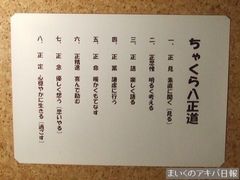 ちゃくら八正道
一、正 見 素直に聞く(見る)
二、正思惟 明るく考える
三、正 語 楽しく語る
四、正 業 謙虚に行う
五、正 命 暖かくもてなす
六、正精進 喜んで励む
七、正 念 優しく想う(思いやる)
八、正 定 心穏やかに生きる(過ごす)
まいくのアキバ日報